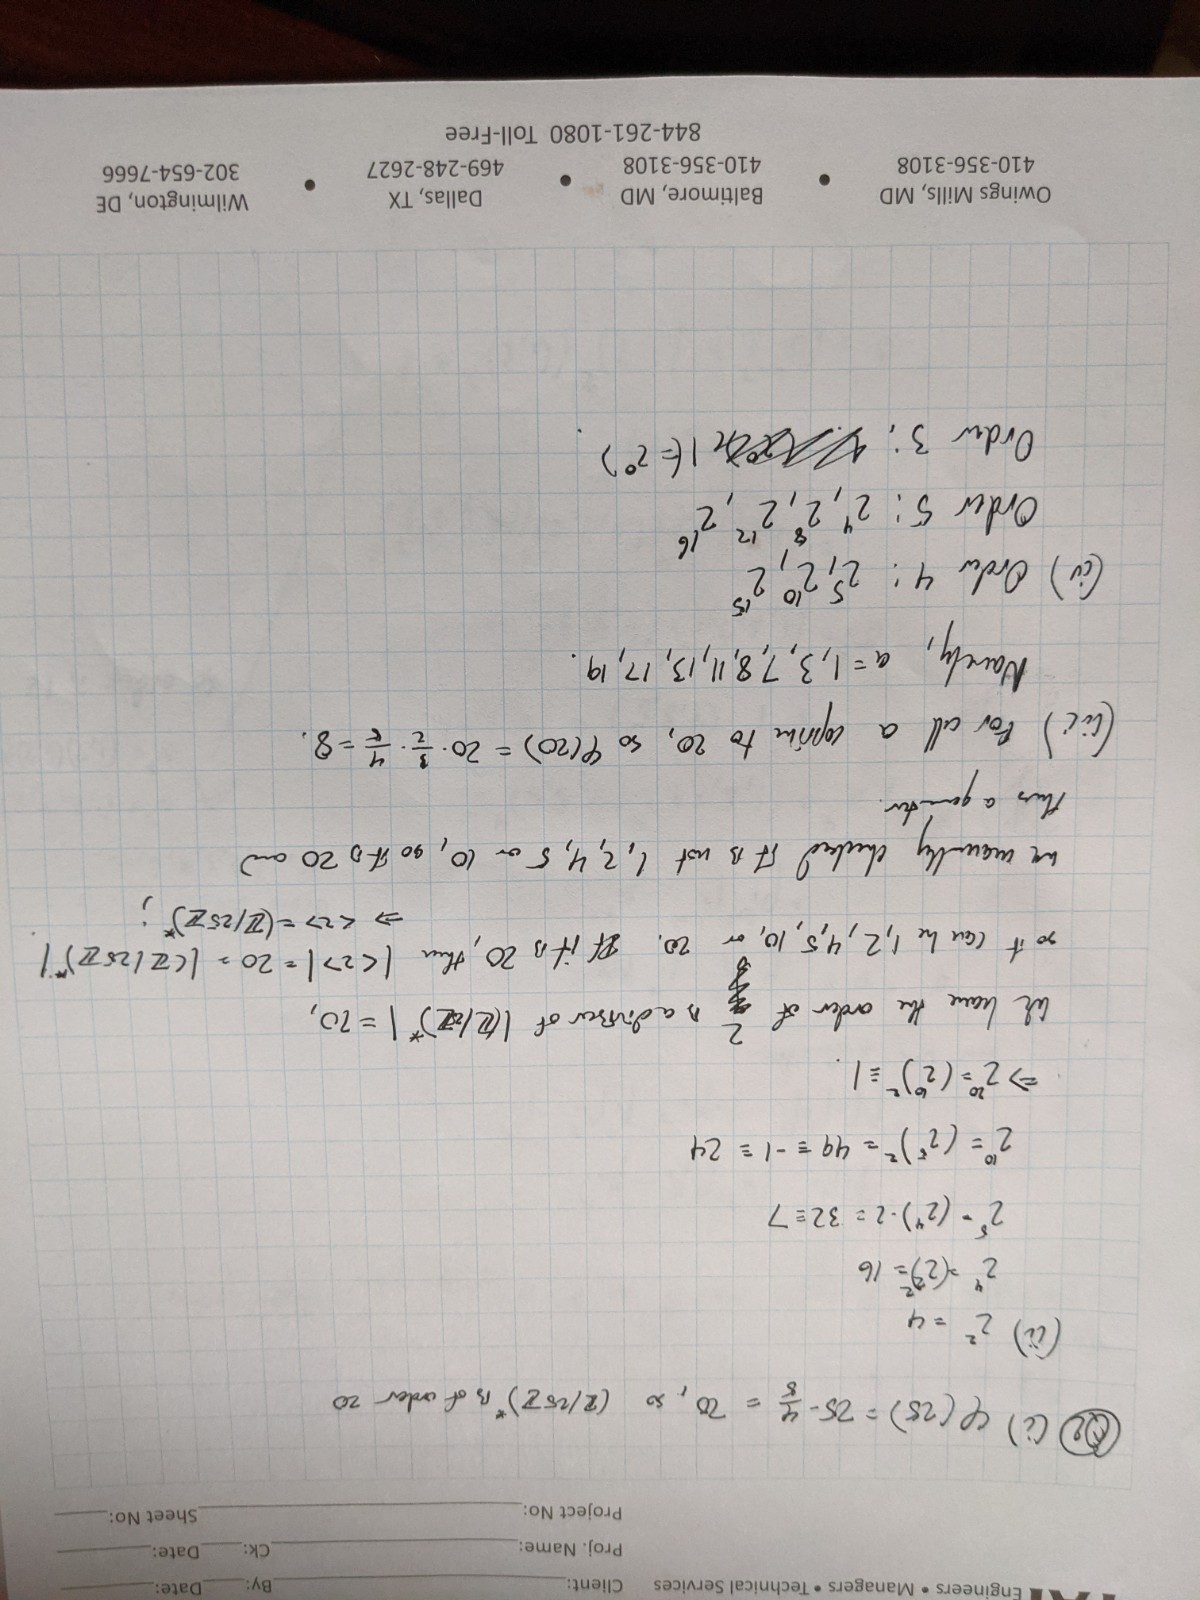 Engineers • Managers • Technical Services Client: By: Date:
Proj. Name: Ck: Date:
Project No: Sheet No:
Q2 (i) φ(25) = 25·4/5 = 20, so (Z/25Z)* is of order 20
(ii) 2² = 4
2⁴ = (2²)² = 16
2⁵ = (2⁴)·2 = 32 ≡ 7
2¹⁰ = (2⁵)² = 49 ≡ -1 ≡ 24
⇒ 2²⁰ = (2¹⁰)² ≡ 1.
We have the order of 2 is a divisor of |(Z/25Z)*| = 20,
so it can be 1, 2, 4, 5, 10, or 20. If it is 20, then |<2>| = 20 = |(Z/25Z)*|
⇒ <2> = (Z/25Z)*;
we manually checked it is not 1, 2, 4, 5 or 10, so it is 20 and
thus a generator.
(iii) For all a coprime to 20, so φ(20) = 20· · 4/5 = 8.
Namely, a = 1, 3, 7, 8, 11, 13, 17, 19.
(iv) Order 4: 2⁵, 2¹⁰, 2¹⁵
Order 5: 2⁴, 2⁸, 2¹², 2¹⁶
Order 3: 1 (= 2⁰)
Owings Mills, MD • Baltimore, MD • Dallas, TX • Wilmington, DE
410-356-3108 410-356-3108 469-248-2627 302-654-7666
844-261-1080 Toll-Free